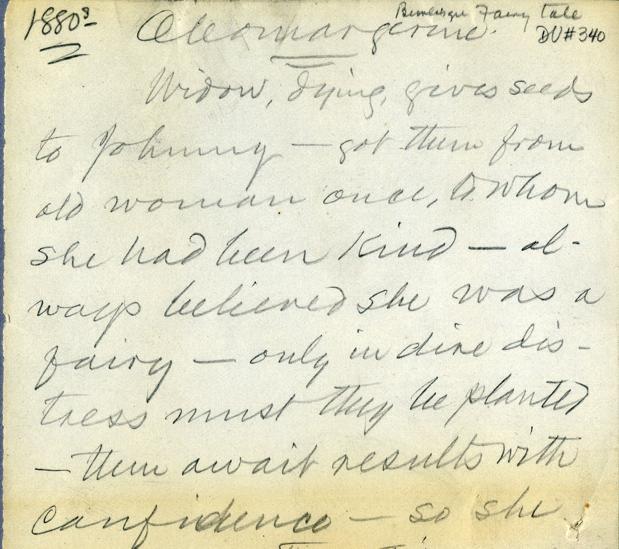 1880s Oleomargarine. Burlesque Fairy tale
DV#340
Widow, dying, gives seeds
to Johnny — got them from
old woman once, to whom
she had been kind — al-
ways believed she was a
fairy — only in dire dis-
tress must they be planted
— then await results with
confidence — so she